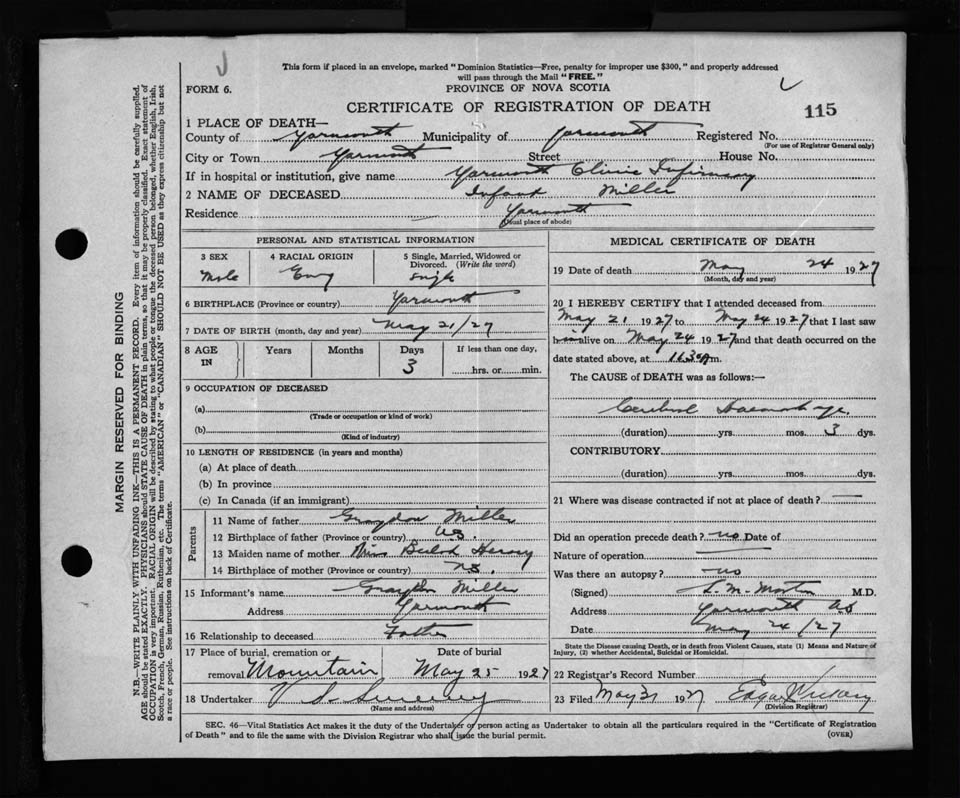 J
This form if placed in an envelope, marked "Dominion Statistics—Free, penalty for improper use $300," and properly addressed
will pass through the Mail "FREE."
FORM 6.
PROVINCE OF NOVA SCOTIA
CERTIFICATE OF REGISTRATION OF DEATH
115
1 PLACE OF DEATH—
County of Yarmouth Municipality of Yarmouth Registered No.
(For use of Registrar General only)
City or Town Yarmouth Street House No.
If in hospital or institution, give name Yarmouth Clinic Infirmary
2 NAME OF DECEASED Infant Miller
Residence Yarmouth
(Usual place of abode)
PERSONAL AND STATISTICAL INFORMATION
3 SEX 4 RACIAL ORIGIN 5 Single, Married, Widowed or
Divorced. (Write the word)
Male Eng Single
6 BIRTHPLACE (Province or country) Yarmouth
7 DATE OF BIRTH (month, day and year) May 21/27
8 AGE IN Years Months Days If less than one day,
3 hrs. or min.
9 OCCUPATION OF DECEASED
(a)
(Trade or occupation or kind of work)
(b)
(Kind of industry)
10 LENGTH OF RESIDENCE (in years and months)
(a) At place of death
(b) In province
(c) In Canada (if an immigrant)
Parents
11 Name of father Graydon Miller
12 Birthplace of father (Province or country) N.S.
13 Maiden name of mother Miss Beulah
14 Birthplace of mother (Province or country) N.S.
15 Informant's name Graydon Miller
Address Yarmouth
16 Relationship to deceased Father
17 Place of burial, cremation or Date of burial
removal Mountain May 25 1927
18 Undertaker V S Sweeny
(Name and address)
MEDICAL CERTIFICATE OF DEATH
19 Date of death May 24 1927
(Month, day and year)
20 I HEREBY CERTIFY that I attended deceased from
May 21 1927 to May 24 1927 that I last saw
him alive on May 24 1927 and that death occurred on the
date stated above, at 11.30 m.
The CAUSE of DEATH was as follows:—
Cerebral Haemorrhage.
(duration) yrs. mos. 3 dys.
CONTRIBUTORY
(duration) yrs. mos. dys.
21 Where was disease contracted if not at place of death? —
Did an operation precede death? no Date of
Nature of operation
Was there an autopsy? no
(Signed) L. M. Morton M.D.
Address Yarmouth NS
Date May 24/27
State the Disease causing Death, or in death from Violent Causes, state (1) Means and Nature of
Injury, (2) whether Accidental, Suicidal or Homicidal.
22 Registrar's Record Number
23 Filed May 31 1927 Edgar
(Division Registrar)
SEC. 46—Vital Statistics Act makes it the duty of the Undertaker or person acting as Undertaker to obtain all the particulars required in the "Certificate of Registration
of Death" and to file the same with the Division Registrar who shall issue the burial permit.
(OVER)
MARGIN RESERVED FOR BINDING
N.B.—WRITE PLAINLY WITH UNFADING INK—THIS IS A PERMANENT RECORD. Every item of information should be carefully supplied.
AGE should be stated EXACTLY. PHYSICIANS should STATE CAUSE OF DEATH in plain terms, so that it may be properly classified. Exact statement of
OCCUPATION is very important. RACIAL ORIGIN will be described by stating to what people or tongue the deceased person belonged, whether English, Irish,
Scotch, French, German, Russian, Ruthenian, etc. The terms "AMERICAN" or "CANADIAN" SHOULD NOT BE USED as they express citizenship but not
a race or people. See instructions on back of Certificate.